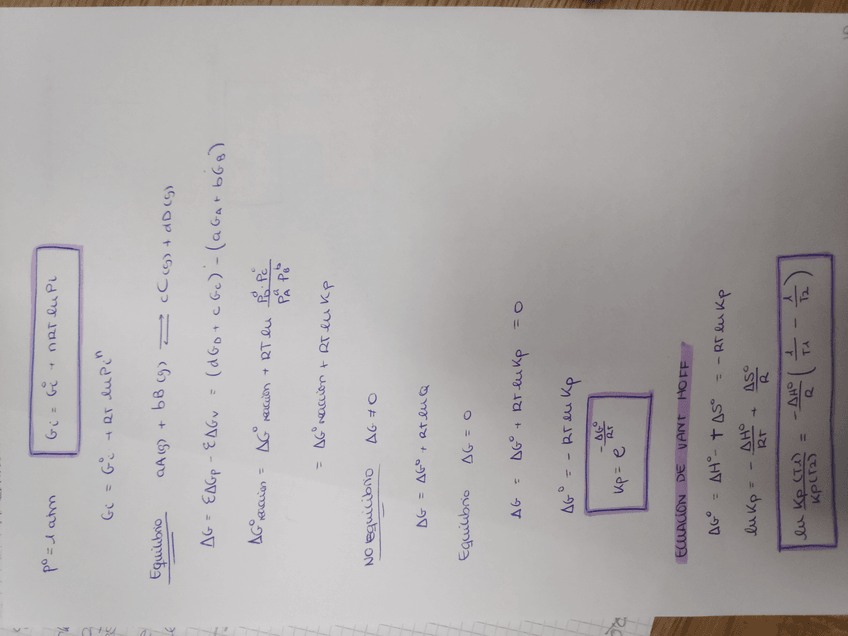 P° = 1 atm    Gi = Gi° + nRT ln Pi
Gi = Gi° + RT ln Pi^n
Equilibrio    aA(g) + bB(g) ⇌ cC(g) + dD(g)
ΔG = ΣΔGp - ΣΔGv = (dGD + cGc) - (aGA + bGB)
ΔG°reacción = ΔG°reacción + RT ln (PD^d · Pc^c)/(PA^a · PB^b)
= ΔG°reacción + RT ln Kp
NO Equilibrio    ΔG ≠ 0
ΔG = ΔG° + RT ln Q
Equilibrio    ΔG = 0
ΔG = ΔG° + RT ln Kp = 0
ΔG° = -RT ln Kp
Kp = e^(-ΔG°/RT)
ECUACIÓN DE VANT HOFF
ΔG° = ΔH° - TΔS° = -RT ln Kp
ln Kp = -ΔH°/RT + ΔS°/R
ln Kp(T1)/Kp(T2) = -ΔH°/R (1/T1 - 1/T2)